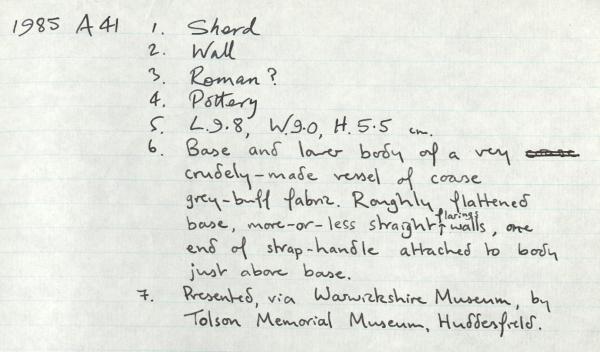 1985 A 41 1. Sherd
2. Wall
3. Roman?
4. Pottery
5. L.9.8, W.9.0, H.5.5 cm.
6. Base and lower body of a very
crudely-made vessel of coarse
grey-buff fabric. Roughly flattened
base, more-or-less straight flaring walls, one
end of strap-handle attached to body
just above base.
7. Presented, via Warwickshire Museum, by
Tolson Memorial Museum, Huddersfield.